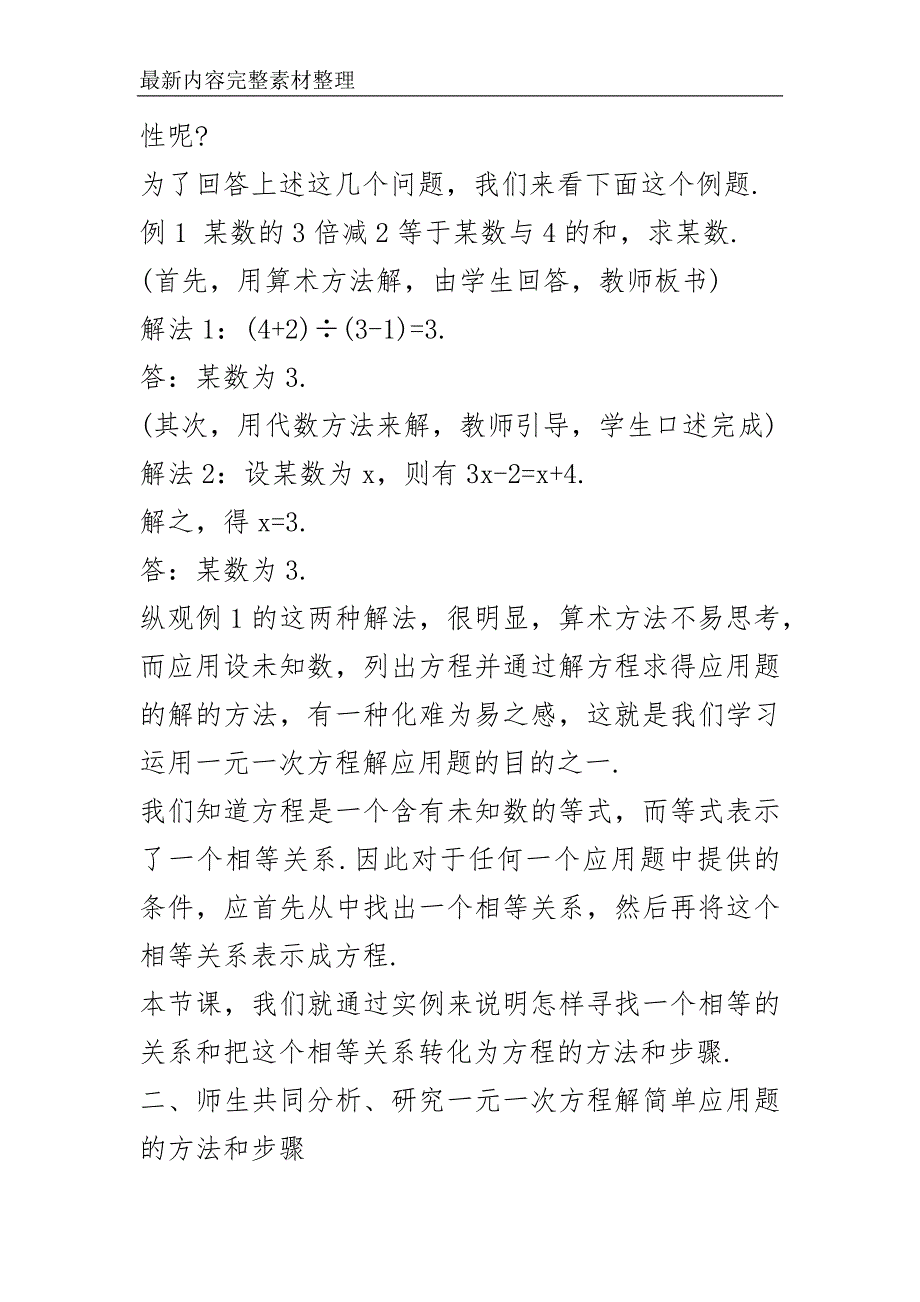 最新内容完整素材整理
性呢?
为了回答上述这几个问题，我们来看下面这个例题.
例1 某数的3倍减2等于某数与4的和，求某数.
(首先，用算术方法解，由学生回答，教师板书)
解法1：(4+2)÷(3-1)=3.
答：某数为3.
(其次，用代数方法来解，教师引导，学生口述完成)
解法2：设某数为x，则有3x-2=x+4.
解之，得x=3.
答：某数为3.
纵观例1的这两种解法，很明显，算术方法不易思考，
而应用设未知数，列出方程并通过解方程求得应用题
的解的方法，有一种化难为易之感，这就是我们学习
运用一元一次方程解应用题的目的之一.
我们知道方程是一个含有未知数的等式，而等式表示
了一个相等关系.因此对于任何一个应用题中提供的
条件，应首先从中找出一个相等关系，然后再将这个
相等关系表示成方程.
本节课，我们就通过实例来说明怎样寻找一个相等的
关系和把这个相等关系转化为方程的方法和步骤.
二、师生共同分析、研究一元一次方程解简单应用题
的方法和步骤